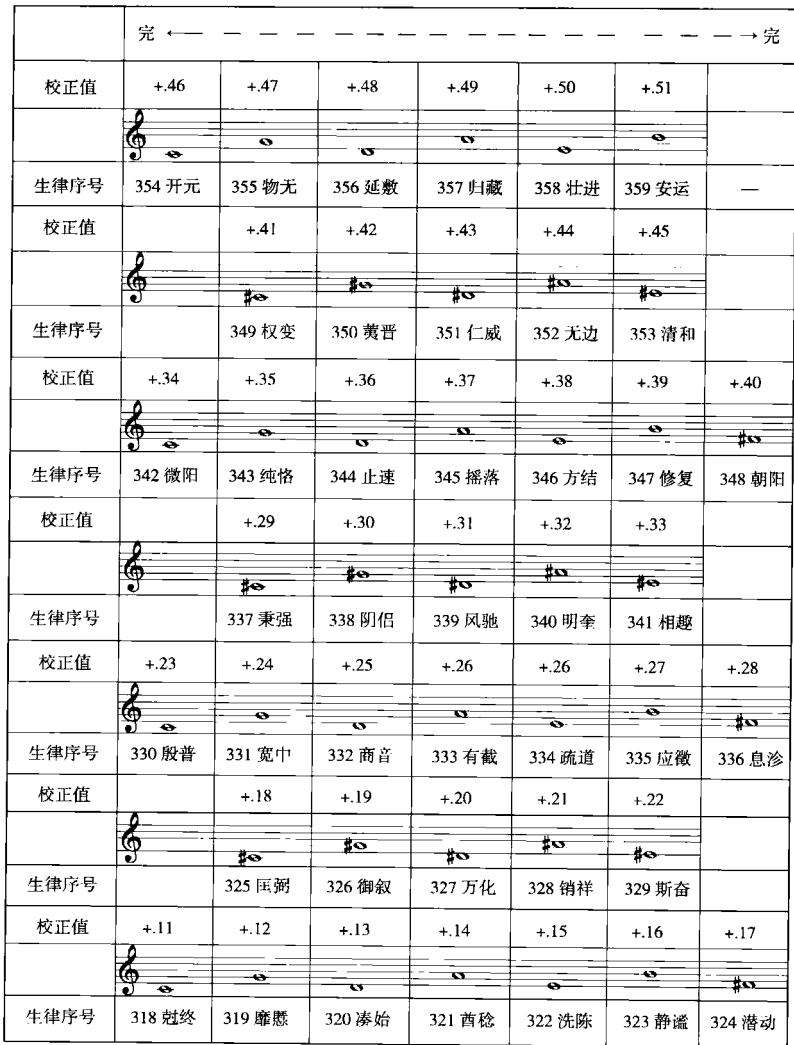 完 ←— — — — — — — — — — — — — —→ 完
校正值 +.46 +.47 +.48 +.49 +.50 +.51
生律序号 354 开元 355 物无 356 延敷 357 归藏 358 壮进 359 安运 —
校正值 +.41 +.42 +.43 +.44 +.45
生律序号 349 权变 350 荑晋 351 仁威 352 无边 353 清和
校正值 +.34 +.35 +.36 +.37 +.38 +.39 +.40
生律序号 342 微阳 343 纯恪 344 止速 345 摇落 346 方结 347 修复 348 朝阳
校正值 +.29 +.30 +.31 +.32 +.33
生律序号 337 秉强 338 阴侣 339 风驰 340 明奎 341 相趣
校正值 +.23 +.24 +.25 +.26 +.26 +.27 +.28
生律序号 330 殷普 331 宽中 332 商音 333 有截 334 疏道 335 应徵 336 息沴
校正值 +.18 +.19 +.20 +.21 +.22
生律序号 325 匡弼 326 御叙 327 万化 328 销祥 329 斯奋
校正值 +.11 +.12 +.13 +.14 +.15 +.16 +.17
生律序号 318 兙终 319 靡慝 320 凑始 321 酋稔 322 洗陈 323 静谧 324 潜动